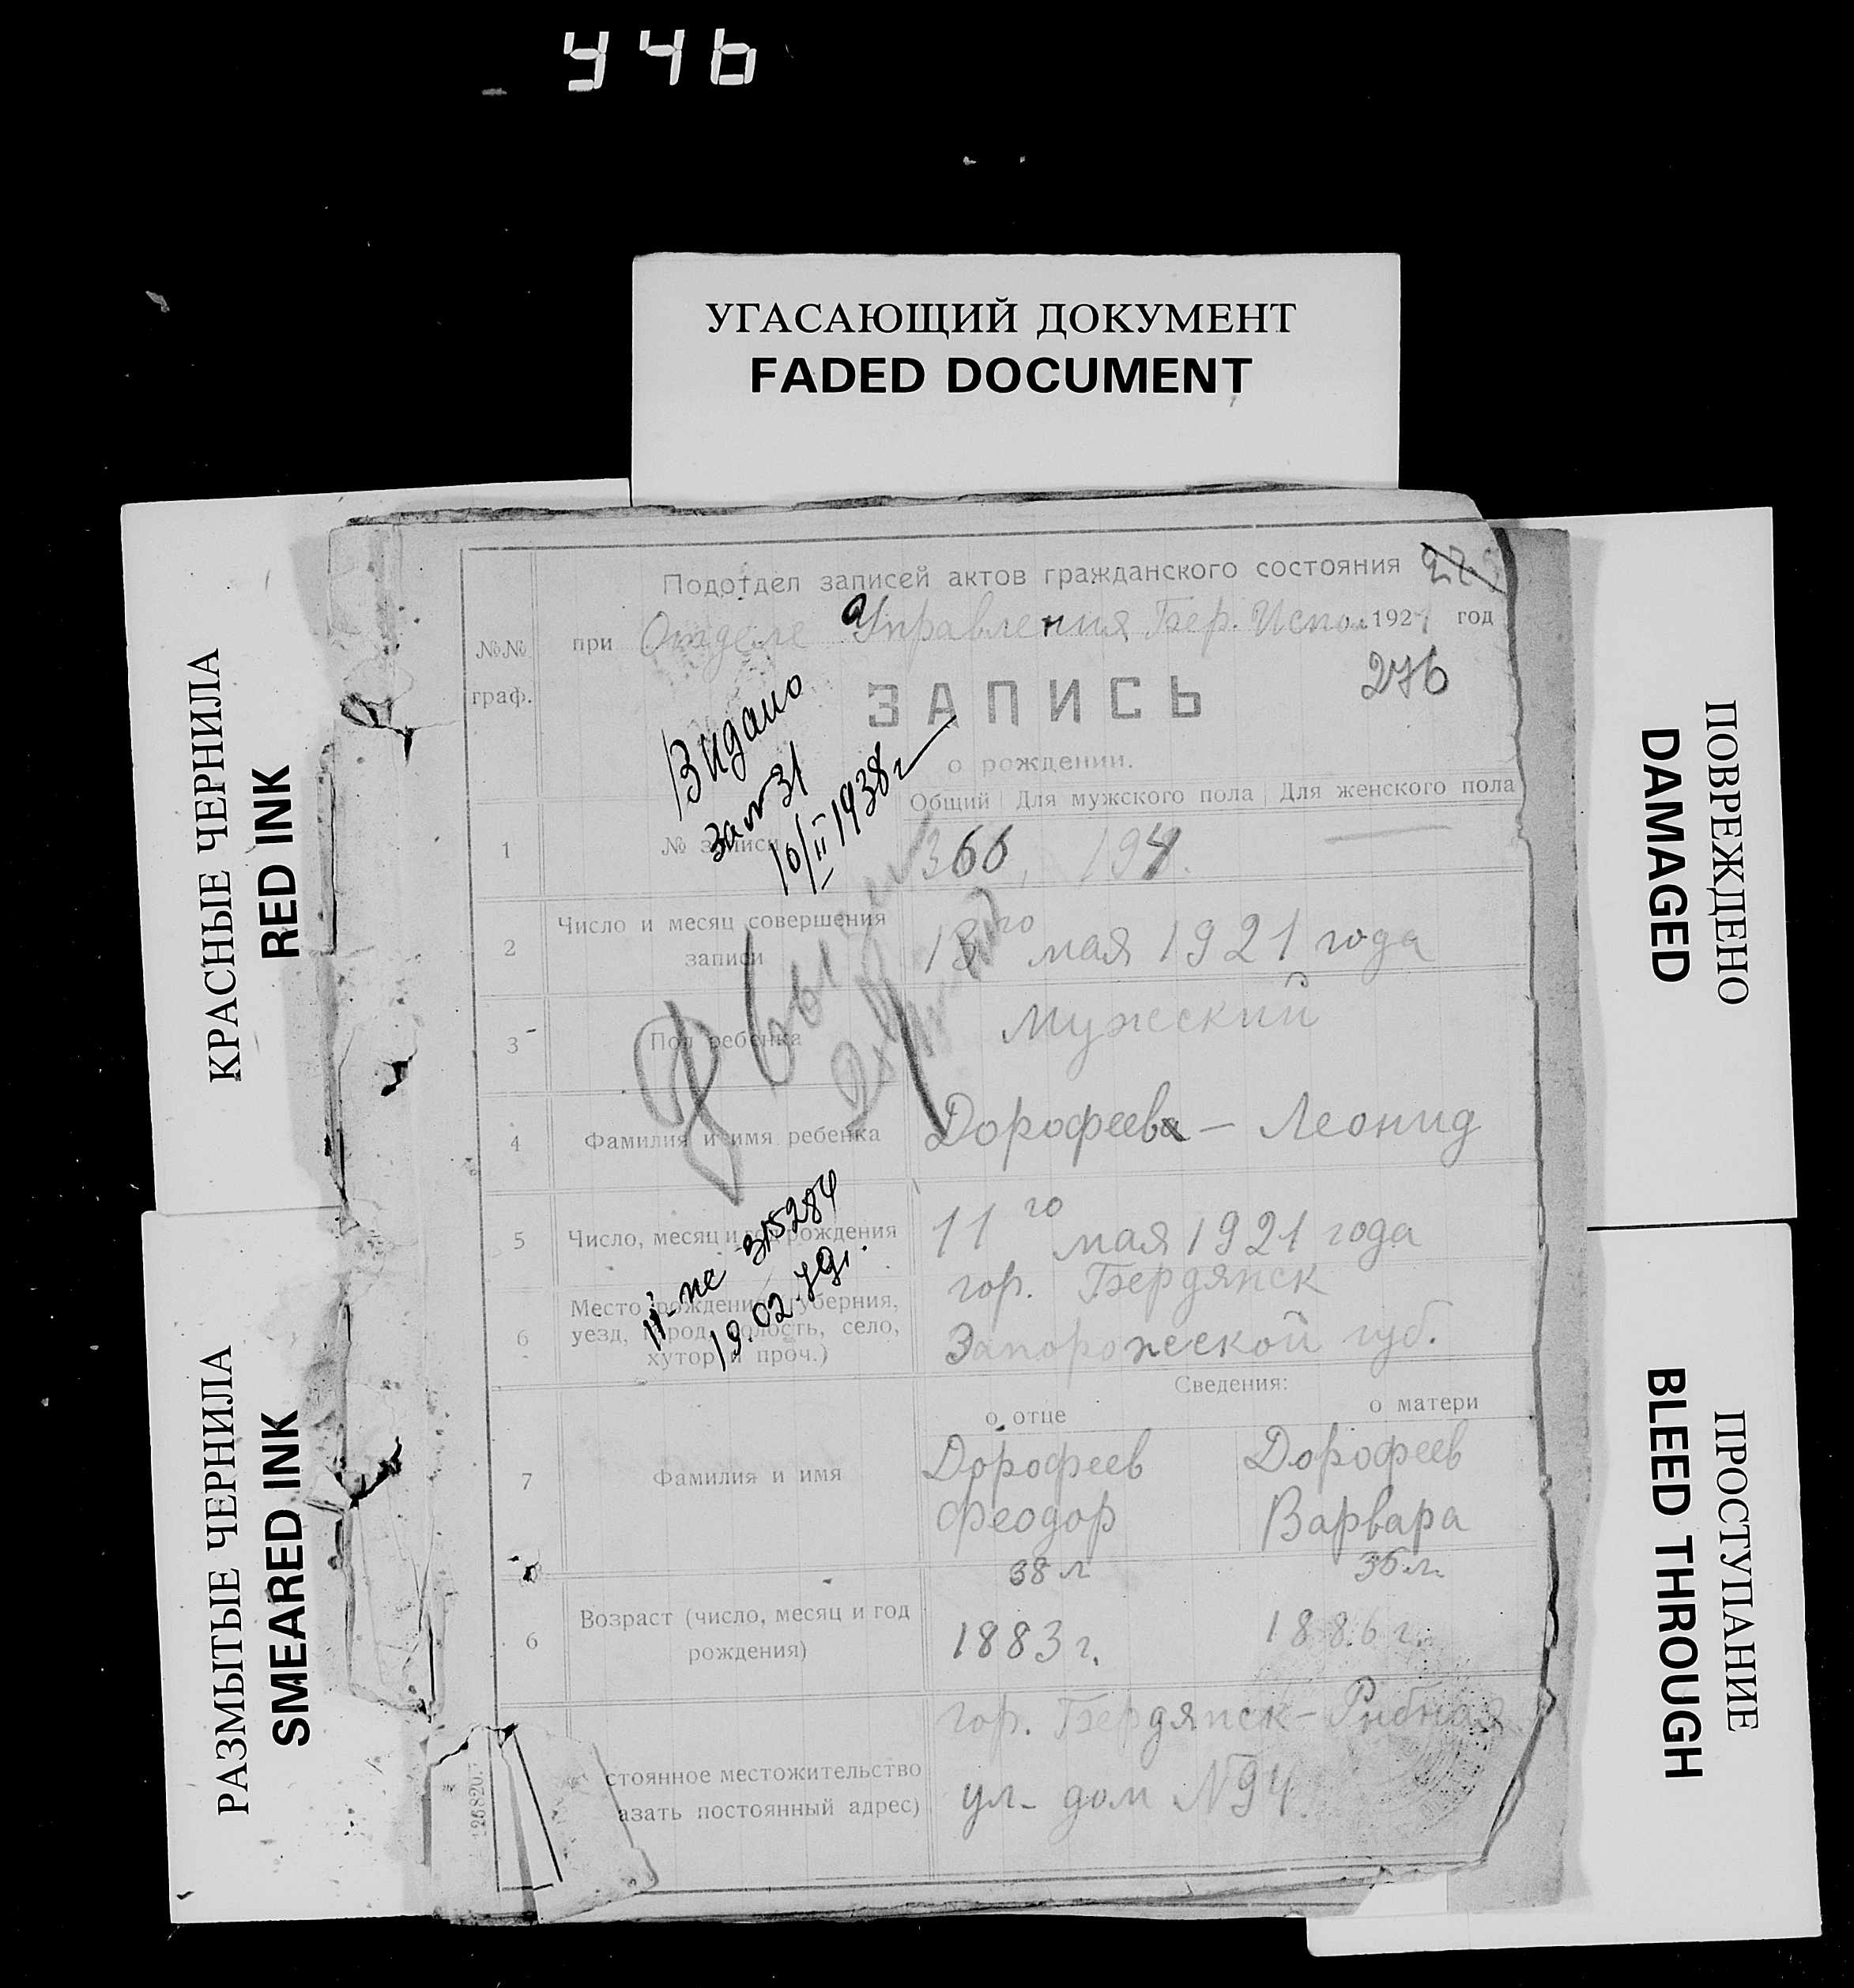 446
УГАСАЮЩИЙ ДОКУМЕНТ
FADED DOCUMENT
КРАСНЫЕ ЧЕРНИЛА
RED INK
РАЗМЫТЫЕ ЧЕРНИЛА
SMEARED INK
ПОВРЕЖДЕНО
DAMAGED
ПРОСТУПАНИЕ
BLEED THROUGH
Подотдел записей актов гражданского состояния
при Отделе Управления Бер. Испол. 1921 год
№№ граф.
276
ЗАПИСЬ
о рождении.
Видано
за № 31
16/II 1938 г
Общий Для мужского пола Для женского пола
1 № записи 366, 194. —
2 Число и месяц совершения
записи 13го мая 1921 года
3 Пол ребенка Мужский
4 Фамилия и имя ребенка Дорофеев – Леонид
5 Число, месяц и год рождения 11го мая 1921 года
315284
19.02
6 Место рождения (губерния,
уезд, город, волость, село,
хутор и проч.)
гор. Бердянск
Запорожской губ.
Сведения:
о отце о матери
7 Фамилия и имя
Дорофеев Дорофеев
Феодор Варвара
38 л 35 л.
6 Возраст (число, месяц и год
рождения)
1883 г. 1886 г.
стоянное местожительство
азать постоянный адрес)
гор. Бердянск – Рибная
ул. дом №94
126820.